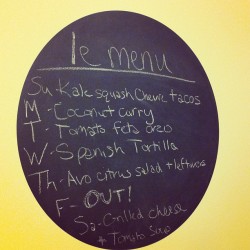 le menu
Su - Kale squash Chevre tacos
M - Coconut curry
T - Tomato feta orzo
W - Spanish Tortilla
Th - Avo citrus salad + leftovers
F - OUT!
Sa - Grilled cheese
+ Tomato Soup